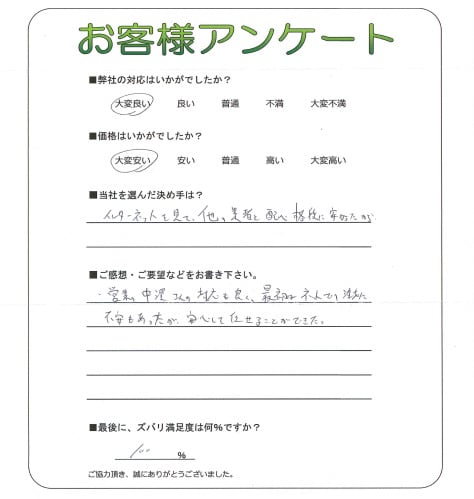 お客様アンケート
■弊社の対応はいかがでしたか？
大変良い　良い　普通　不満　大変不満
■価格はいかがでしたか？
大変安い　安い　普通　高い　大変高い
■当社を選んだ決め手は？
インターネットを見て、他の業者と 格段に安かった
■ご感想・ご要望などをお書き下さい。
・営業の中澤さんの対応も良く、最初は ネットでの
不安もあったが、安心して任せることができた。
■最後に、ズバリ満足度は何%ですか？
100 %
ご協力頂き、誠にありがとうございました。